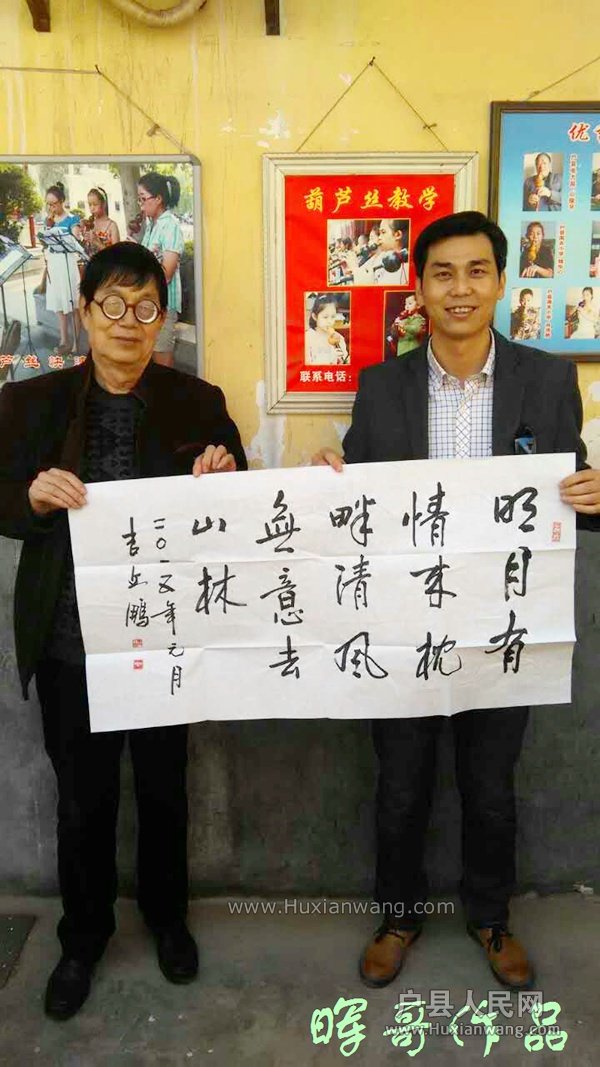 葫芦丝教学
联系电话:
优
芦丝
明月有
情来枕
畔清风
無意去
山林
二〇一五年元月
吉丘鹏
www.Huxianwang.com
户县人民网
www.Huxianwang.com
晖哥作品